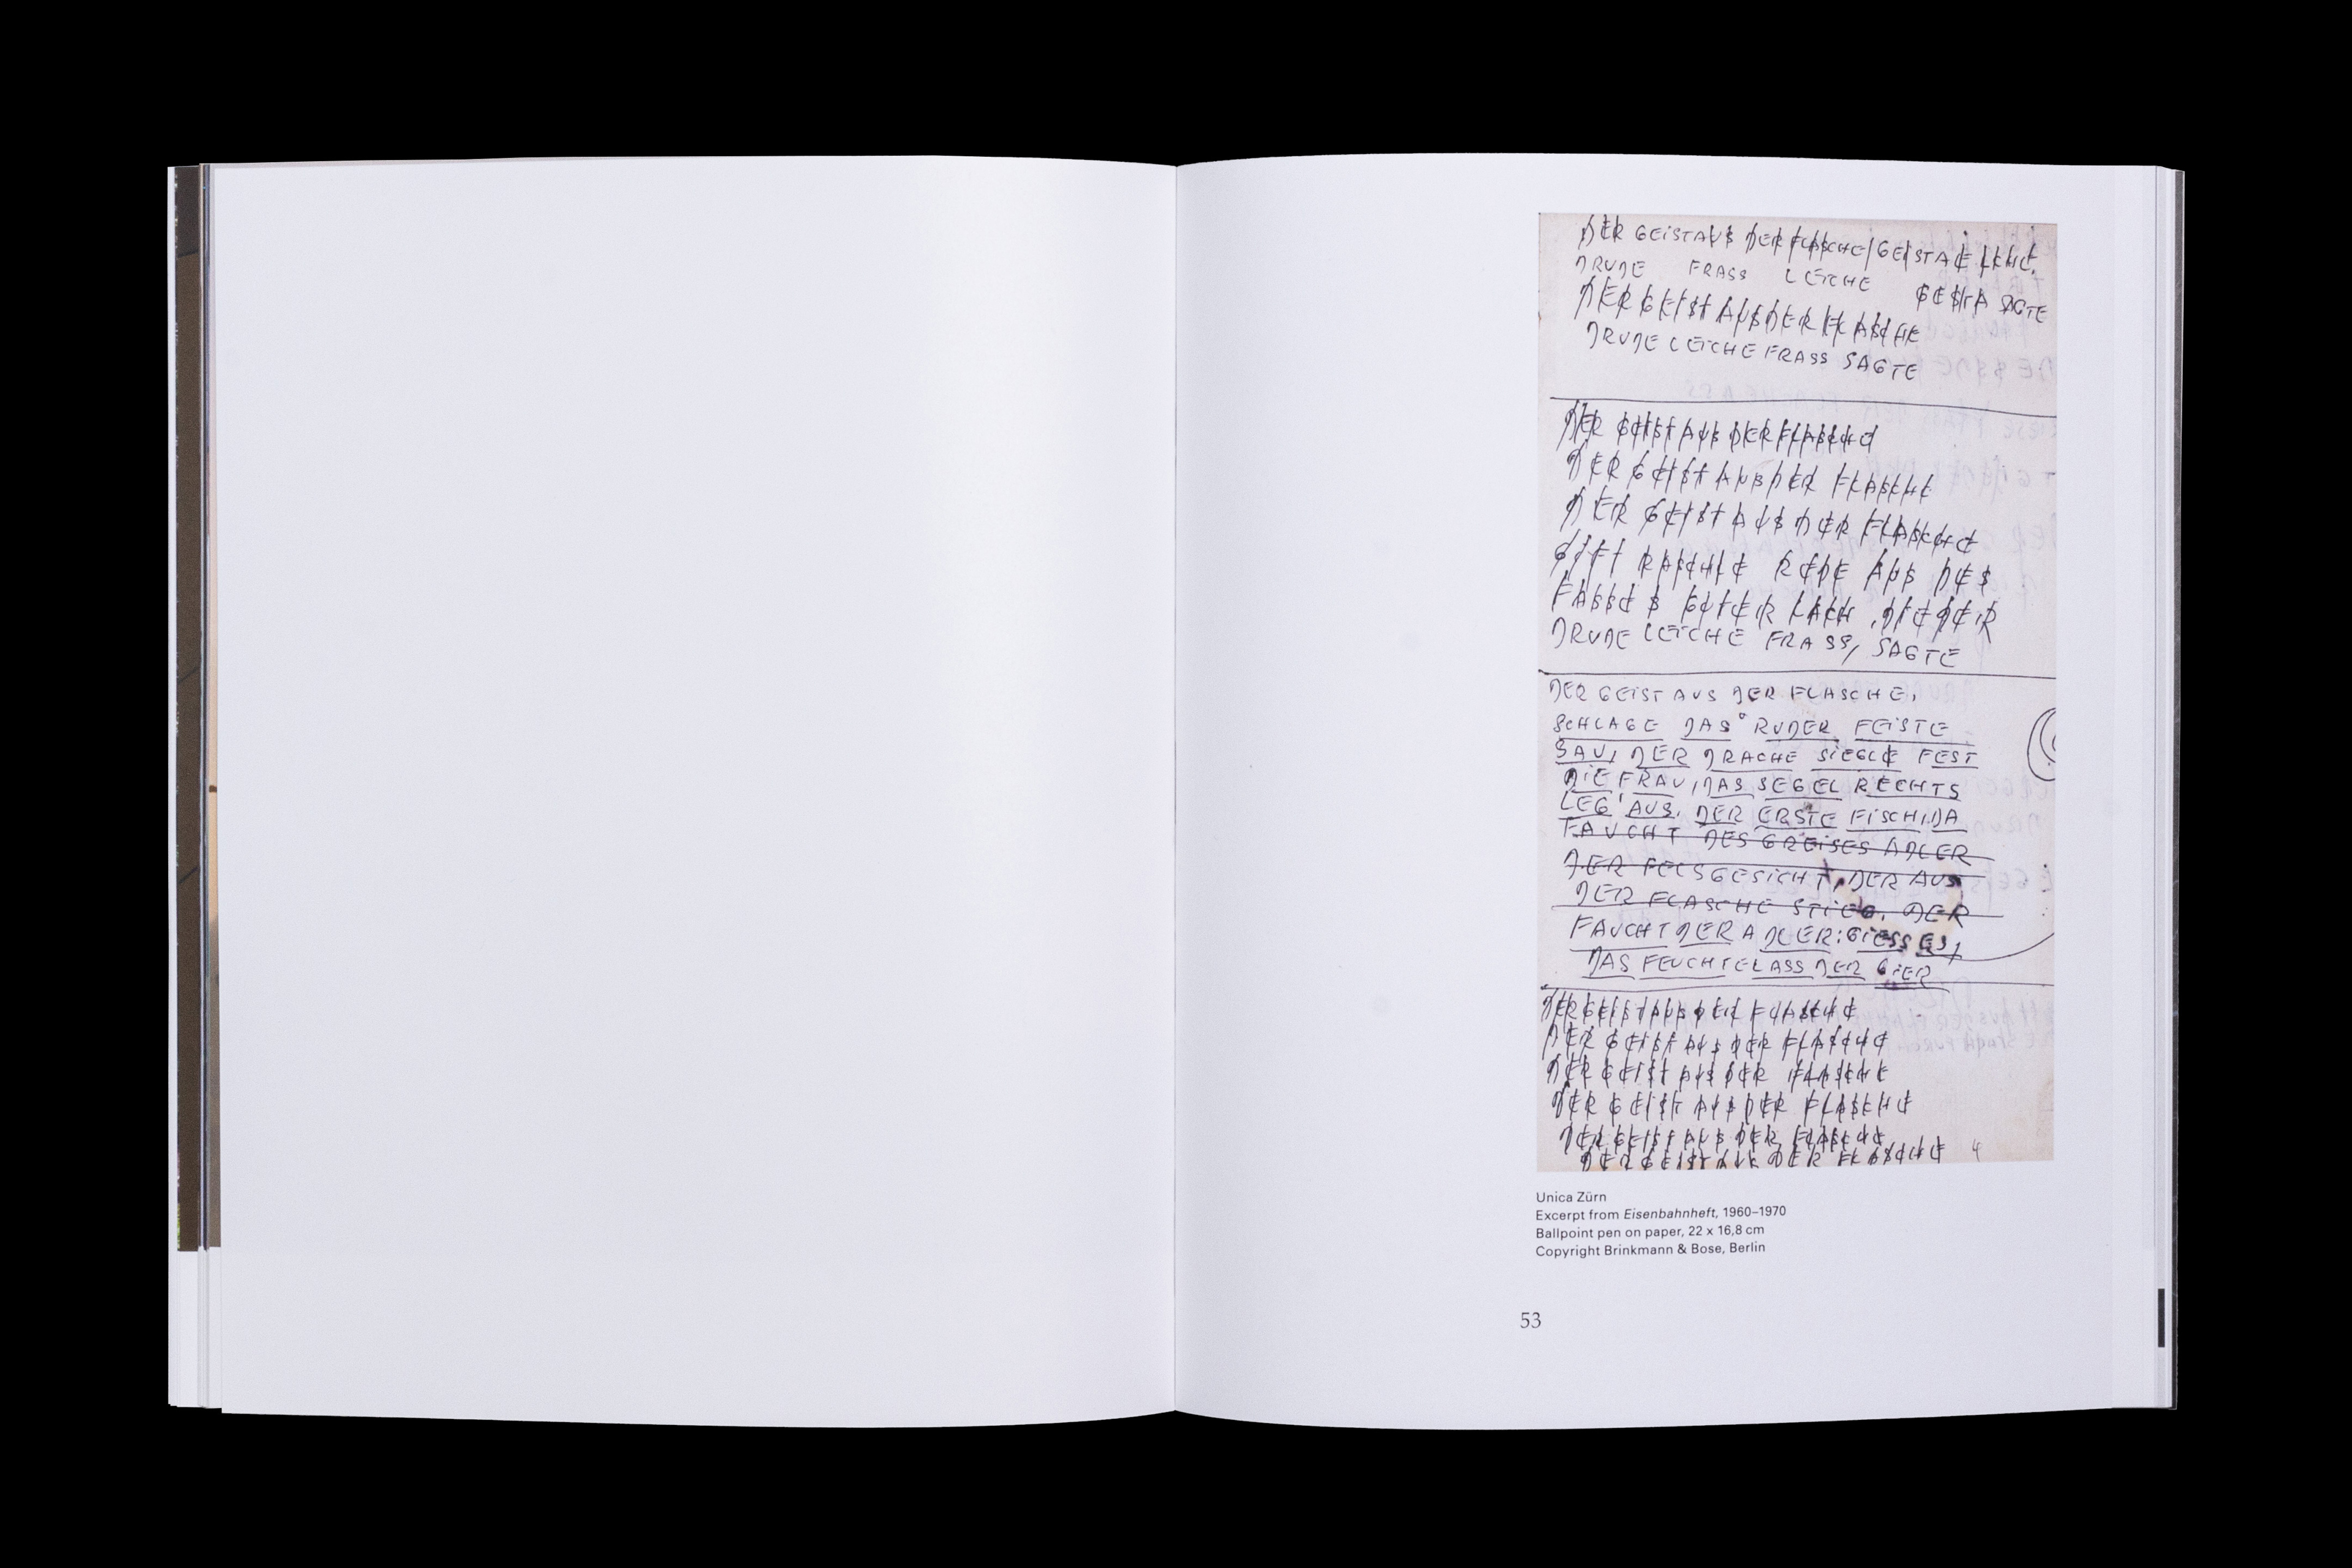 DER GEIST AUS DER FLASCHE/GEIST
DRUDE FRASS LEICHE GESTA SAGTE
DER GEIST AUS DER FLASCHE
DRUDE LEICHE FRASS SAGTE
DER GEIST AUS DER FLASCHE
DER GEIST AUS DER FLASCHE
DER GEIST AUS DER FLASCHE
RASCHLE REDE AUS DES
FASSES GUTER LACH
DRUDE LEICHE FRASS, SAGTE
DER GEIST AUS DER FLASCHE.
SCHLAGE DAS RUDER FEISTE
SAU, DER DRACHE SIEGLE FEST
DIE FRAU, DAS SEGEL RECHTS
LEG' AUS. DER ERSTE FISCH, DA
FAUCHT DES GREISES ADLER
DER FELSGESICHT, DER AUS
DER FLASCHE STIEG. DER
FAUCHT DER ADLER: GIESS ES,
DAS FEUCHTELASS DER GIER
DER GEIST AUS DER FLASCHE
DER GEIST AUS DER FLASCHE
DER GEIST AUS DER FLASCHE
DER GEIST AUS DER FLASCHE
DER GEIST AUS DER FLASCHE
DER GEIST AUS DER FLASCHE 4
Unica Zürn
Excerpt from Eisenbahnheft, 1960–1970
Ballpoint pen on paper, 22 x 16,8 cm
Copyright Brinkmann & Bose, Berlin
53